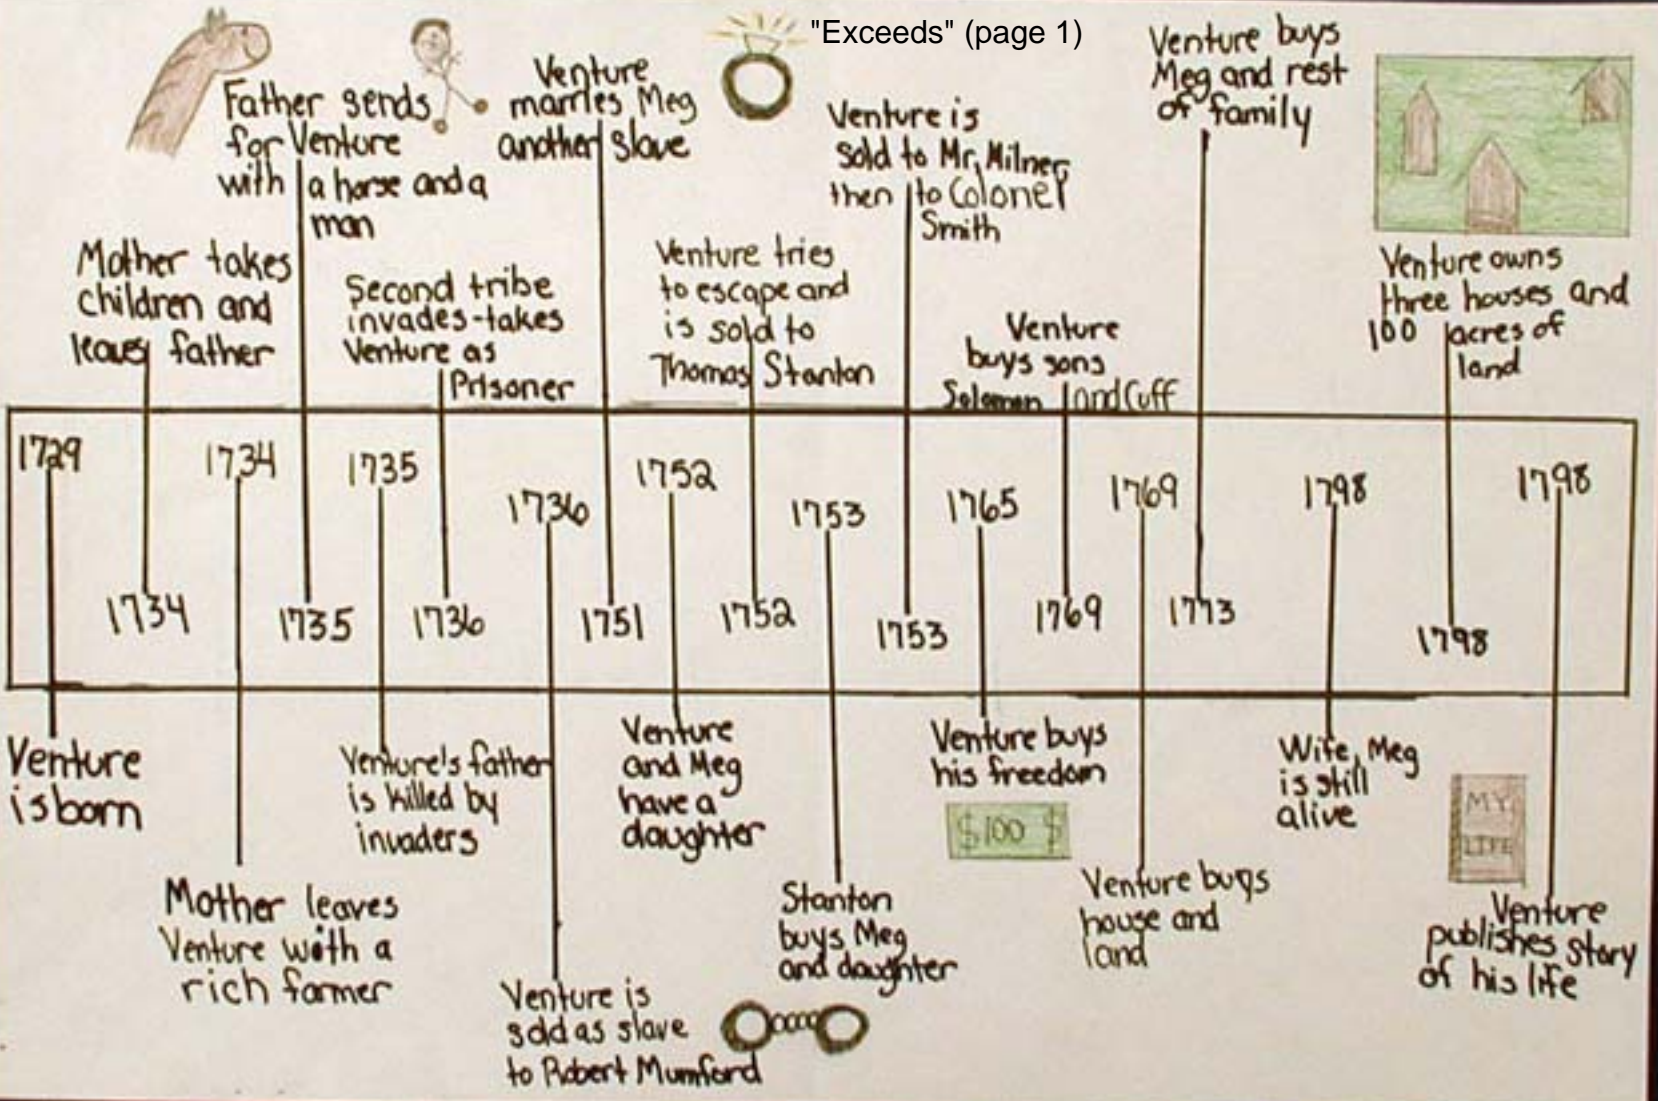 "Exceeds" (page 1)
Father sends
for Venture
with a horse and a
man
Venture
marries Meg
another slave
Venture is
sold to Mr. Milner,
then to Colonel
Smith
Venture buys
Meg and rest
of family
Mother takes
children and
leaves father
Second tribe
invades-takes
Venture as
Prisoner
Venture tries
to escape and
is sold to
Thomas Stanton
Venture
buys sons
Solomon and Cuff
Venture owns
three houses and
100 acres of
land
1729
1734
1734
1735
1735
1736
1736
1751
1752
1752
1753
1753
1765
1769
1769
1773
1798
1798
1798
Venture
is born
Mother leaves
Venture with a
rich farmer
Venture's father
is killed by
invaders
Venture is
sold as slave
to Robert Mumford
Venture
and Meg
have a
daughter
Stanton
buys Meg
and daughter
Venture buys
his freedom
$100 $
Venture buys
house and
land
Wife, Meg
is still
alive
MY
LIFE
Venture
publishes story
of his life